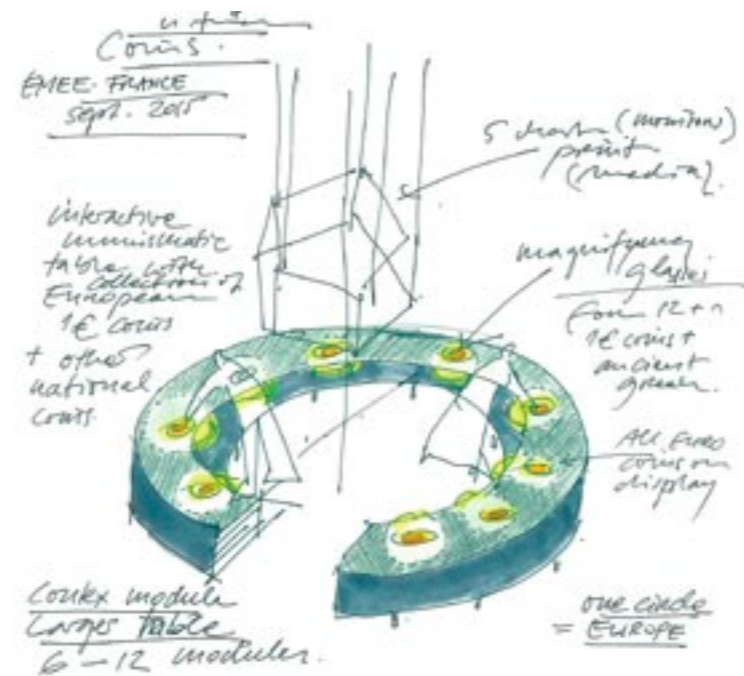 Coins.
EMEE. FRANCE
sept. 2015
5 (monitors)
(media).
interactive
numismatic
table with
collection of
European
1€ coins
+ other
national
coins
magnifying
glasses
for 12 + n
1€ coins +
ancient
greek.
ALL EURO
coins on
display
Contex module
Larges Table
6 – 12 modules.
one circle
= EUROPE